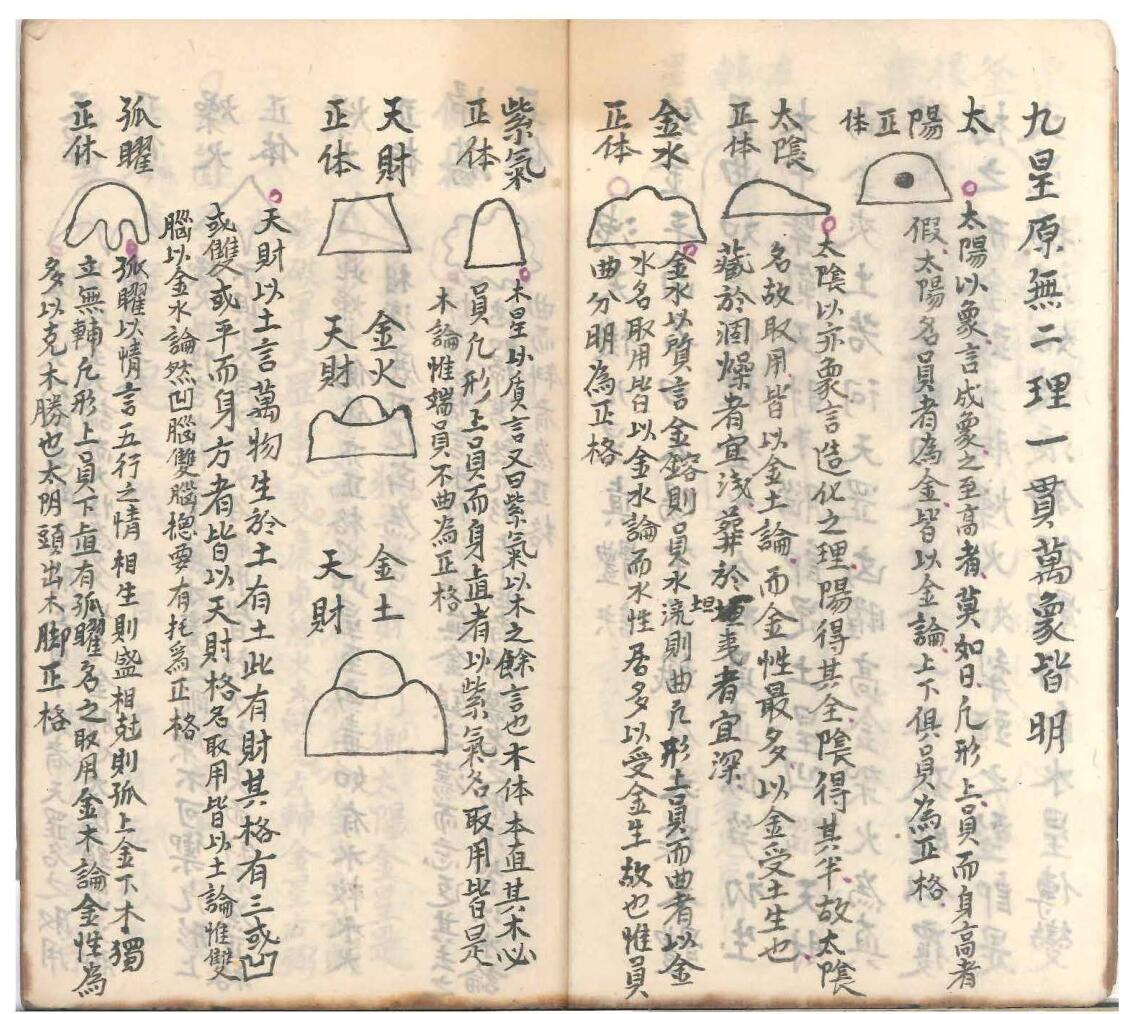 九星原無二理一貫萬象皆明
太陽正体
太陽以象言成象之至高者莫如日凢形上員而身高者
假太陽名員者為金皆以金論上下俱員為正格
太陰
正体
太陰以亦象言造化之理陽得其全陰得其半故太陰
名故取用皆以金土論而金性最多以金受土生也
藏於涸燥者宜浅葬於坦夷者宜深
金水
正体
金水以質言金鎔則員水流則曲凢形上員而曲者以金
水名取用皆以金水論而水性居多以受金生故也惟員
曲分明為正格
紫氣
正体
木星以质言又曰紫氣以木之餘言也木体本直其木必
員凢形上員而身直者以紫氣名取用皆曰是
木論惟端員不曲為正格
天財
正体
金火
天財
金土
天財
天財以土言萬物生於土有土此有財其格有三或凹
或雙或平而身方者皆以天財格名取用皆以土論惟雙
腦以金水論然凹腦雙腦揔要有托為正格
孤曜
正休
孤曜以情言五行之情相生則盛相尅則孤上金下木獨
立無輔凢形上員下直有孤曜名之取用金木論金性為
多以克木勝也太阴頭出木脚正格